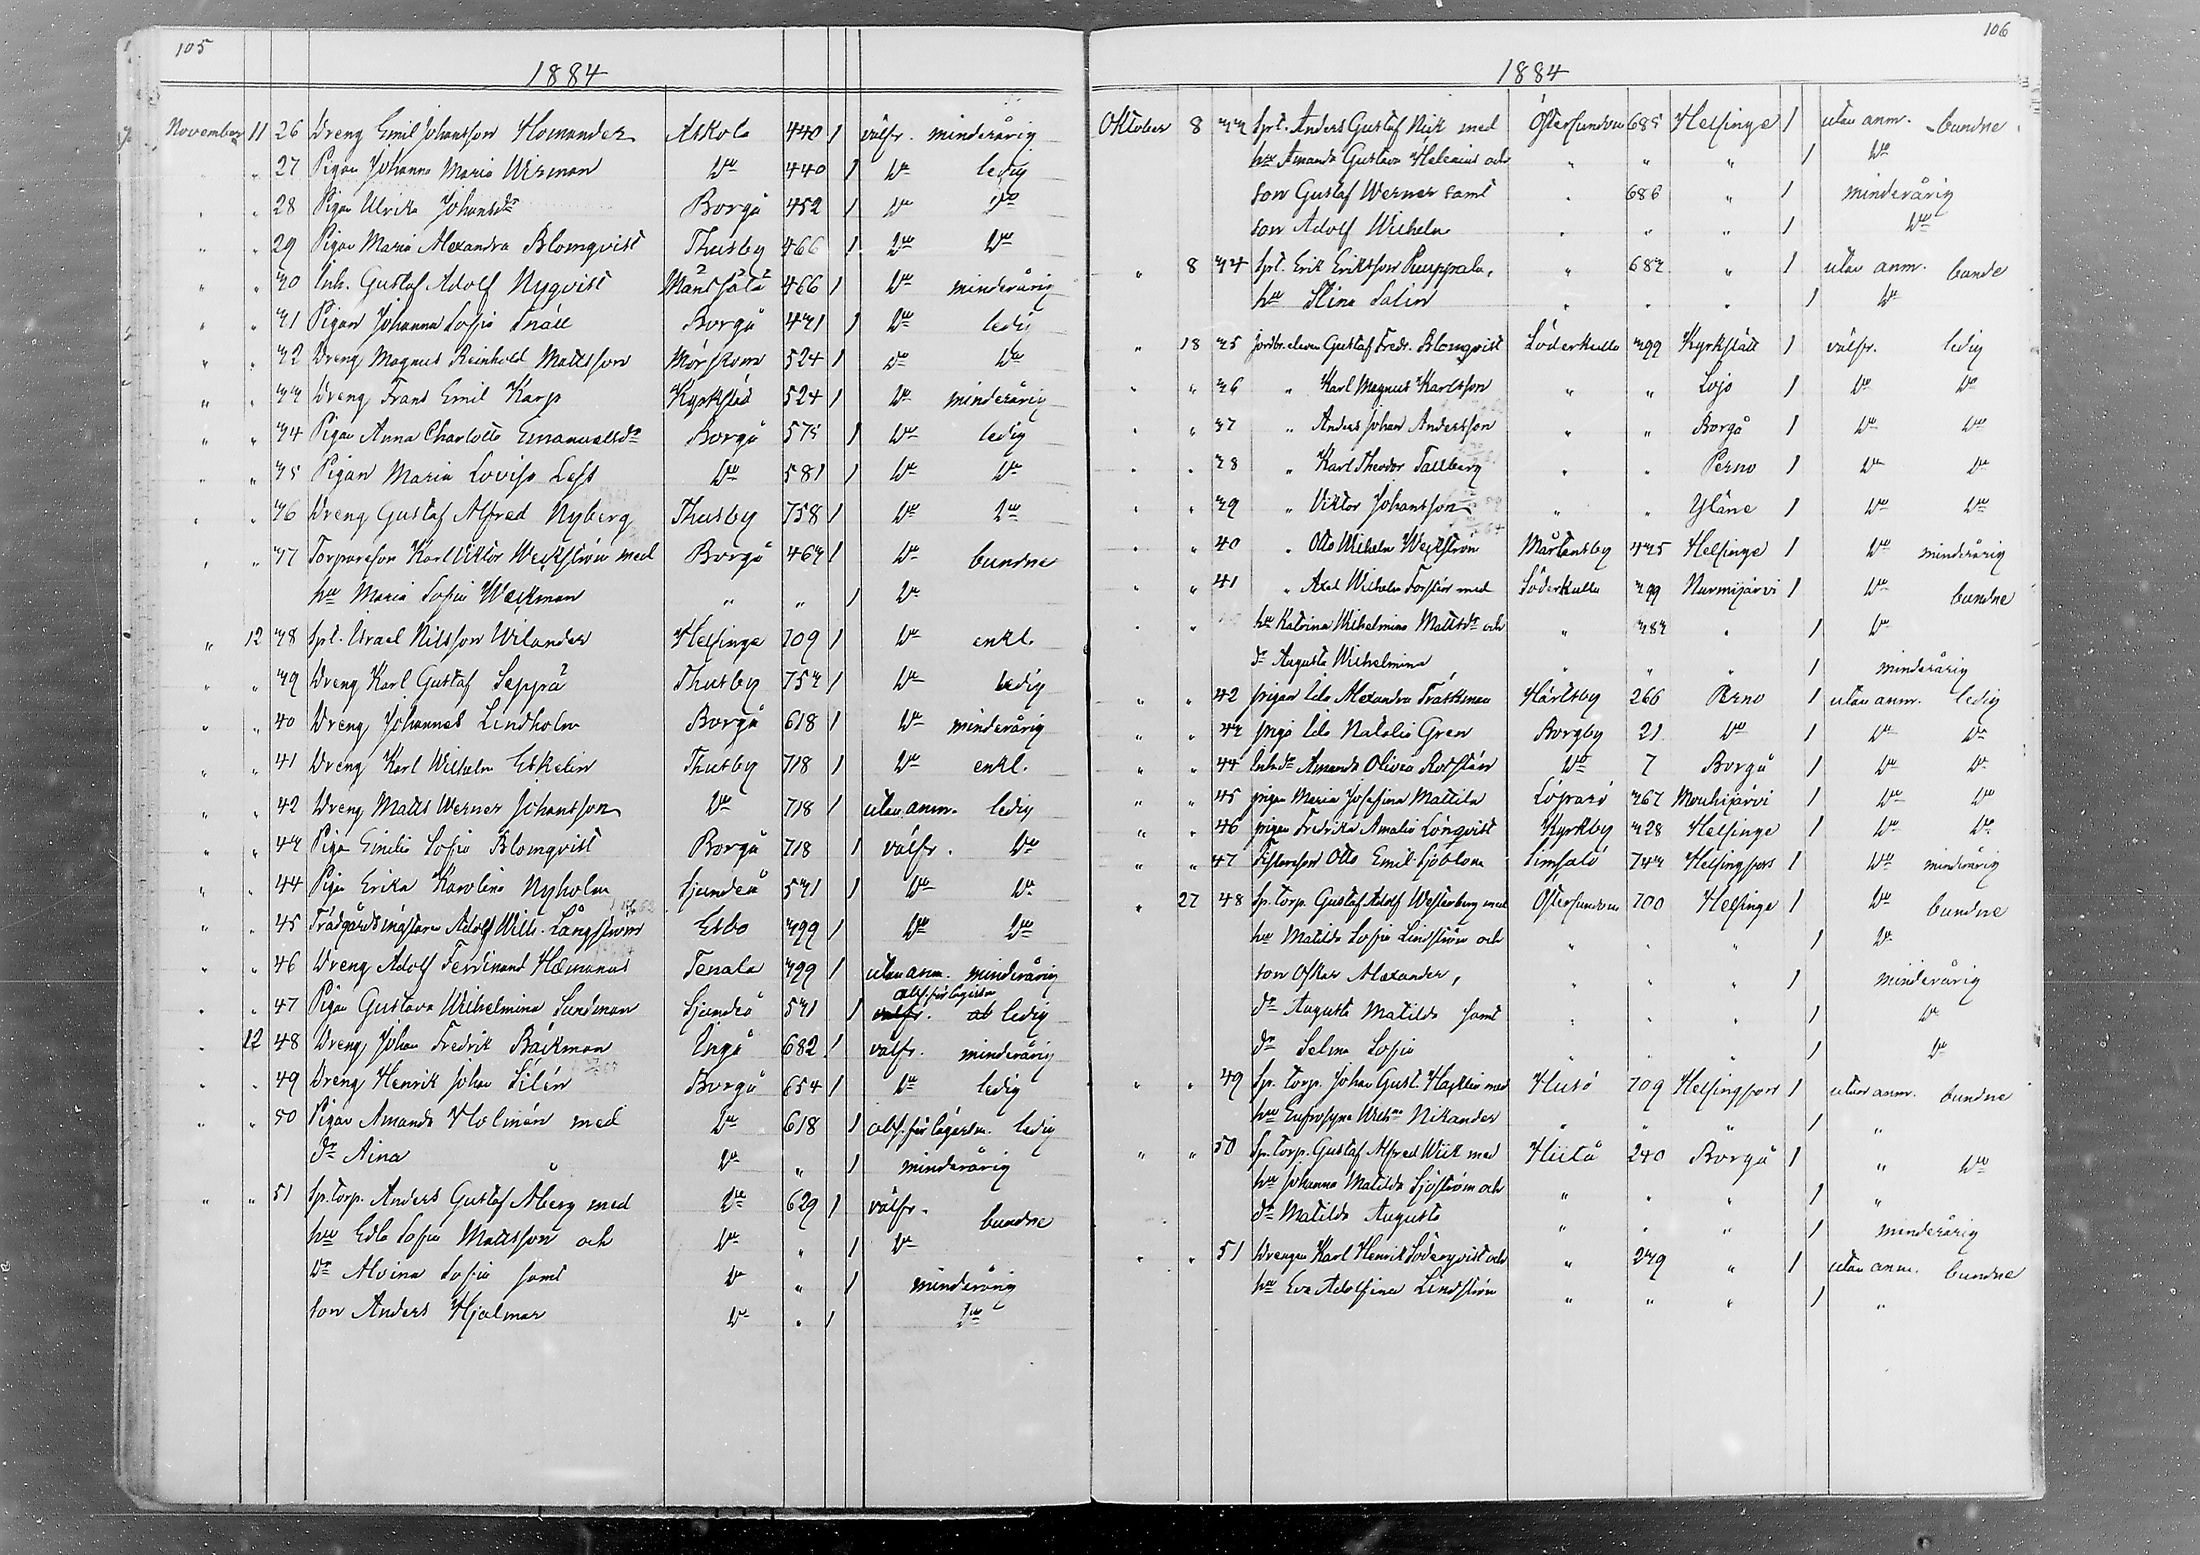 105
1884
November 11 26 Dreng Emil Johansson Homander Askola 440 1 välfr. minderårig
" 27 Pigan Johanna Maria Wirman Do 440 1 Do ledig
" " 28 Pigan Ulrika Johansdr Borgå 452 1 Do Do
" " 29 Pigan Maria Alexandra Blomqvist Thusby 466 1 Do Do
" " 30 Inh. Gustaf Adolf Nyqvist Mäntsälä 466 1 Do minderårig
" " 31 Pigan Johanna Sofia Snäll Borgå 431 1 Do ledig
" " 32 Dreng Magnus Reinhold Mattsson Mörskom 524 1 Do Do
" " 33 Dreng Frans Emil Karp Kyrkstad 524 1 Do minderårig
" " 34 Pigan Anna Charlotta Emanuelsdr Borgå 573 1 Do ledig
" " 35 Pigan Maria Lovisa Do 581 1 Do Do
" " 36 Dreng Gustaf Alfred Nyberg Thusby 758 1 Do Do
" " 37 Torpareson Karl Viktor Weckström med Borgå 463 1 Do bundne
hu Maria Sofia Weckman " " 1 Do
" 12 38 Spt. Israel Nilsson Wilander Helsinge 709 1 Do enkl.
" " 39 Dreng Karl Gustaf Seppä Thusby 753 1 Do ledig
" " 40 Dreng Johannes Lindholm Borgå 618 1 Do minderårig
" " 41 Dreng Karl Wilhelm Eskelin Thusby 718 1 Do enkl.
" " 42 Dreng Matts Werner Johansson Do 718 1 utan anm. ledig
" " 43 Piga Emilia Sofia Blomqvist Borgå 718 1 välfr. Do
" " 44 Piga Erika Karolina Nyholm Sjundeå 531 1 Do Do
" " 45 Trädgårdsmästare Adolf Wilh. Långström Esbo 399 1 Do Do
" " 46 Dreng Adolf Ferdinand Hemanus Tenala 399 1 utan anm. minderårig
" " 47 Pigan Gustava Wilhelmina Sundman Sjundeå 531 1 välfr. absf. för lägersm. ledig
" 12 48 Dreng Johan Fredrik Bäckman Ingå 682 1 välfr. minderårig
" " 49 Dreng Henrik Johan Silén Borgå 654 1 Do ledig
" " 50 Pigan Amanda Holmén med Do 618 1 absf. för lägersm. ledig
dr Aina Do " 1 minderårig
" " 51 Sp. torp. Anders Gustaf Åberg med Do 629 1 välfr. bundne
hu Edla Sofia Mattsson och Do " 1 Do
dr Alvina Sofia samt Do " 1 minderårig
son Anders Hjalmar Do " 1 Do
106
1884
Oktober 8 33 Spt. Anders Gustaf Nick med Östersundom 685 Helsinge 1 utan anm. bundne
hu Amanda Gustava Helenius och " " " 1 Do
son Gustaf Werner samt " 686 " 1 minderårig
son Adolf Wilhelm " " " 1 Do
" 8 34 Spt. Erik Eriksson Puuppala, " 683 " 1 utan anm. bunde
hu Stina Salin " " " 1 Do
" 18 35 Jordbr.eleven Gustaf Fredr. Blomqvist Söderkulla 399 Kyrkslätt 1 välfr. ledig
" " 36 " Karl Magnus Karlsson " " Lojo 1 Do Do
" " 37 " Anders Johan Andersson " " Borgå 1 Do Do
" " 38 " Karl Theodor Tallberg " " Perno 1 Do Do
" " 39 " Viktor Johansson " " Yläne 1 Do Do
" " 40 " Otto Wilhelm Weckström Mårtensby 435 Helsinge 1 Do minderårig
" " 41 " Axel Wilhelm Forsstén med Söderkulla 399 Nurmijärvi 1 Do bundne
" " hu Katrina Wilhelmina Mattsdr och " 383 " 1 Do
dr Augusta Wilhelmina " " " 1 minderårig
" " 42 pigan Ida Alexandra Träskman Härtsby 266 Perno 1 utan anm. ledig
" " 43 piga Ida Natalia Gren Borgby 21 Do 1 Do Do
" " 44 Inhdr Amanda Olivia Rosstén Do 7 Borgå 1 Do Do
" " 45 pigan Maria Josefina Mattila Löparö 367 Mouhijärvi 1 Do Do
" " 46 pigan Fredrika Amalia Lönqvist Kyrkby 328 Helsinge 1 Do Do
" " 47 Otto Emil Sjöblom Simsalö 743 Helsingfors 1 Do minderårig
" 27 48 Sp. torp. Gustaf Adolf Westerberg med Östersundom 700 Helsinge 1 Do bundne
hu Matilda Sofia Lindström och " " " 1 Do
son Oskar Alexander, " " " 1 minderårig
dr Augusta Matilda samt " " " 1 Do
dr Selma Sofia " " " 1 Do
" " 49 Sp. torp. Johan Gust. Hagelin med Husö 709 Helsingfors 1 utan anm. bundne
hu Eufrosyne Wilhna Nikander " " " 1 "
" " 50 Sp. torp. Gustaf Alfred Wiik med Hitå 240 Borgå 1 " Do
hu Johanna Matilda Sjöström och " " " 1 "
dr Matilda Augusta " " " 1 minderårig
" " 51 Drengen Karl Henrik Söderqvist och " 239 " 1 utan anm. bundne
hu Eva Adolfina Lindström " " " 1 "